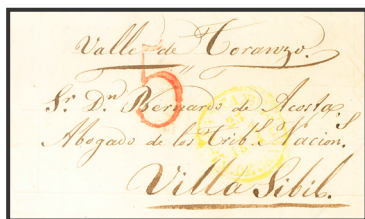 Valle de Toranzo.
5
Sr. Dn. Bernardo de Acosta,
Abogado de los Trib.s Nacion.s
Villa Sibil.